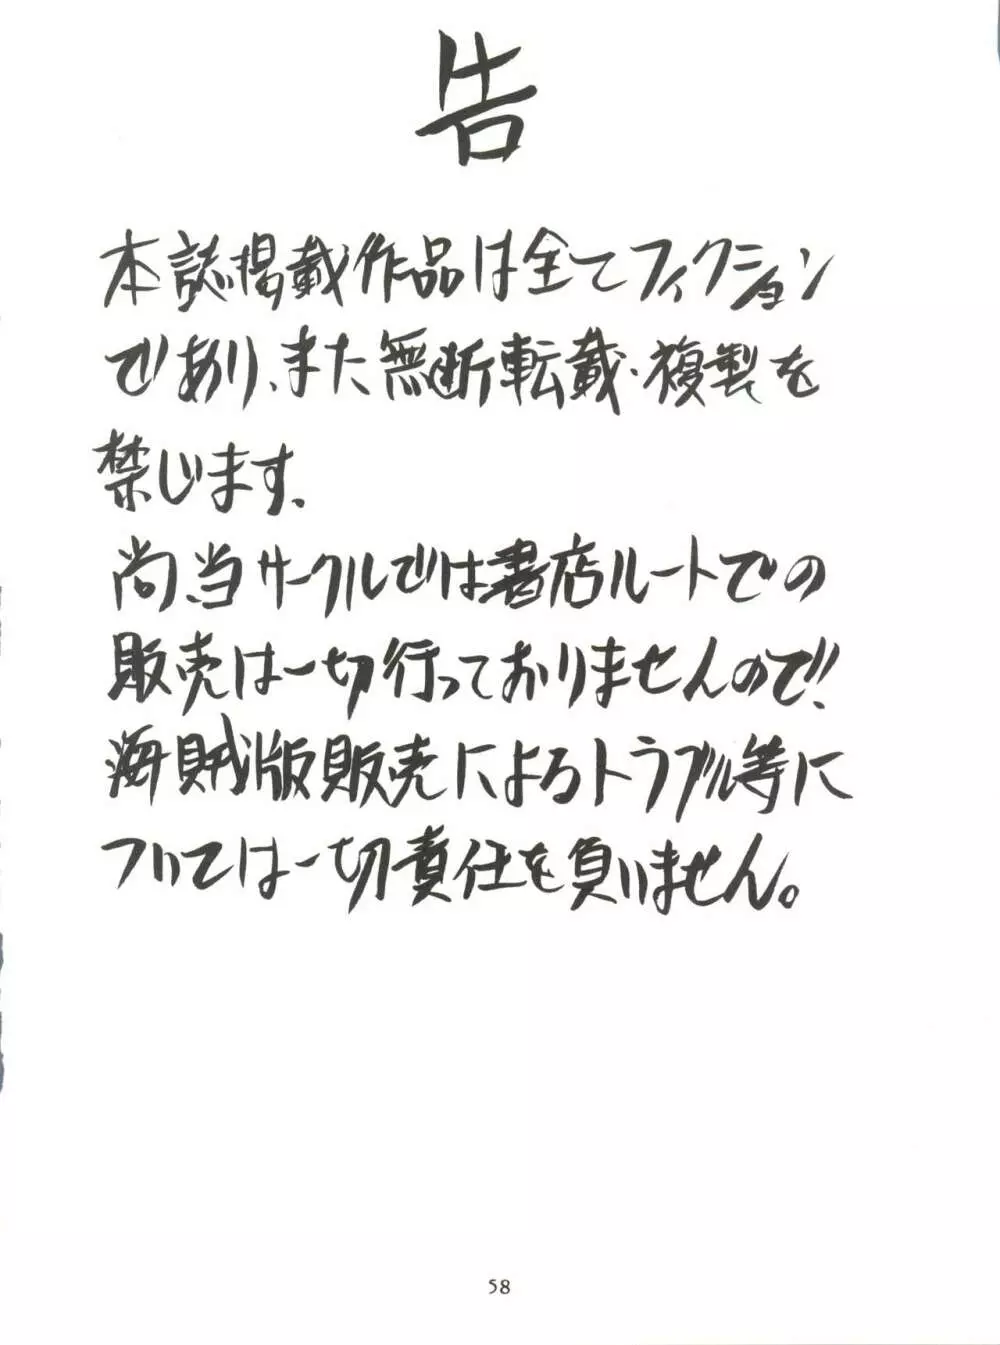 告
本誌掲載作品は全てフィクション
であり、また無断転載・複製を
禁じます、
尚、当サークルでは書店ルートでの
販売は一切行っておりませんので!!
海賊版販売によるトラブル等に
ついては一切責任を負いません。
58